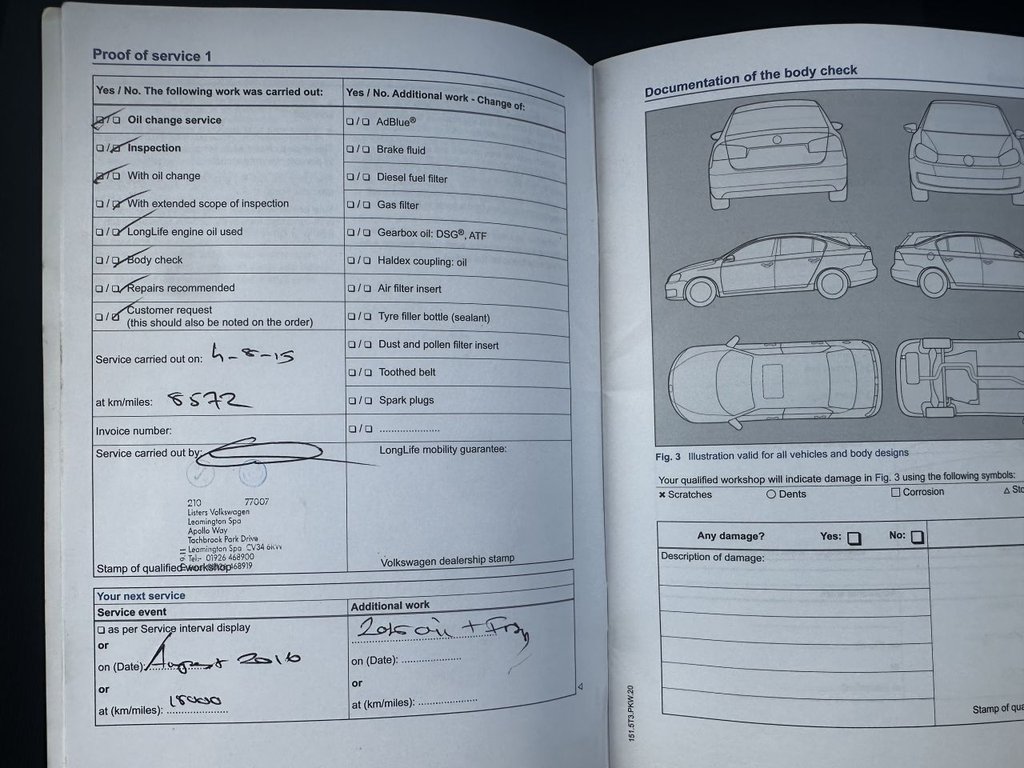 Proof of service 1
Yes / No. The following work was carried out:
❏ / ❏ Oil change service
❏ / ❏ Inspection
❏ / ❏ With oil change
❏ / ❏ With extended scope of inspection
❏ / ❏ LongLife engine oil used
❏ / ❏ Body check
❏ / ❏ Repairs recommended
❏ / ❏ Customer request
(this should also be noted on the order)
Service carried out on: 4-8-15
at km/miles: 8572
Invoice number:
Service carried out by:
210 77007
Listers Volkswagen
Leamington Spa
Apollo Way
Tachbrook Park Drive
Leamington Spa CV34
Tel:- 01926 468900
468919
Stamp of qualified workshop
Yes / No. Additional work - Change of:
❏ / ❏ AdBlue®
❏ / ❏ Brake fluid
❏ / ❏ Diesel fuel filter
❏ / ❏ Gas filter
❏ / ❏ Gearbox oil: DSG®, ATF
❏ / ❏ Haldex coupling: oil
❏ / ❏ Air filter insert
❏ / ❏ Tyre filler bottle (sealant)
❏ / ❏ Dust and pollen filter insert
❏ / ❏ Toothed belt
❏ / ❏ Spark plugs
❏ / ❏ .....................
LongLife mobility guarantee:
Volkswagen dealership stamp
Your next service
Service event
❏ as per Service interval display
or
on (Date): August 2016
or
at (km/miles): 18000
Additional work
oil +
on (Date): .....................
or
at (km/miles): .....................
Documentation of the body check
Fig. 3 Illustration valid for all vehicles and body designs
Your qualified workshop will indicate damage in Fig. 3 using the following symbols:
× Scratches ○ Dents □ Corrosion △
Any damage? Yes: ❏ No: ❏
Description of damage:
Stamp of
151.5T3.PKW.20